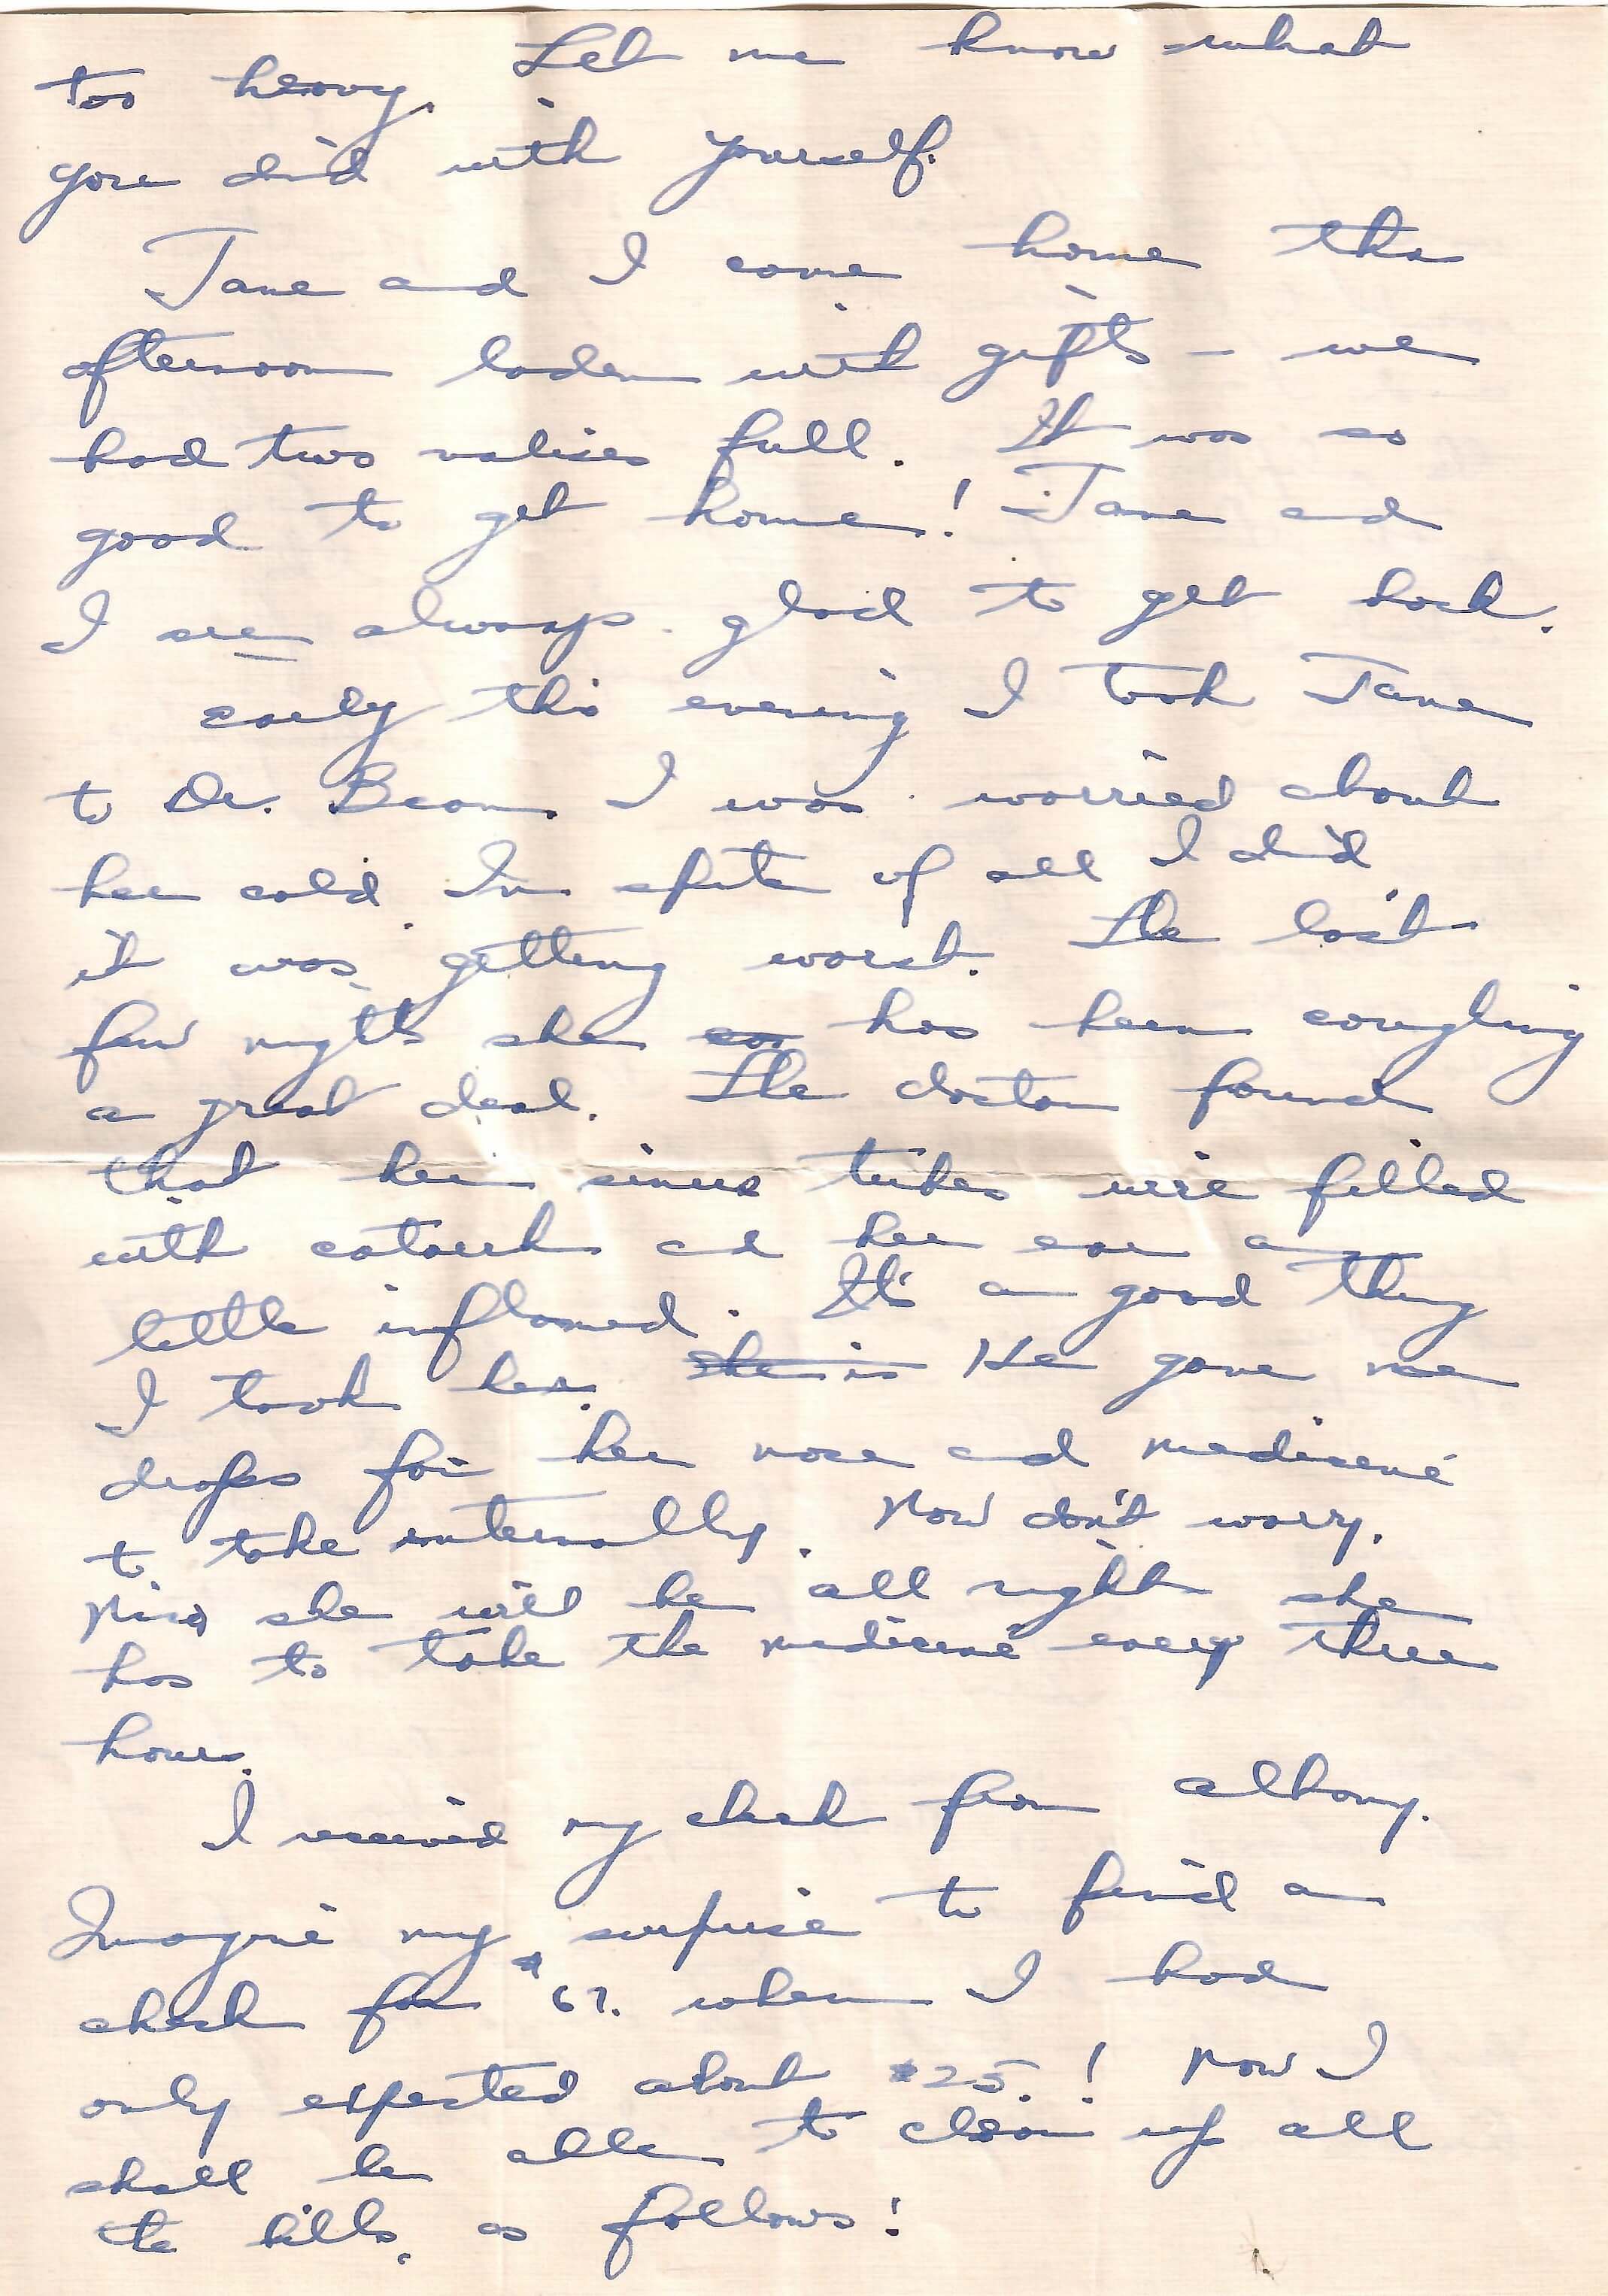 too heavy. Let me know what
you did with yourself.
Jane and I came home this
afternoon laden with gifts - we
had two valises full. It was so
good to get home! Jane and
I are always glad to get back.
Early this evening I took Jane
to Dr. Beam. I was worried about
her cold. In spite of all I did,
it was getting worst. The last
few nights she has been coughing
a great deal. The doctor found
that her sinus tubes were filled
with catarrh and her ear a
little inflamed. It's a good thing
I took her. She is He gave me
drops for her nose and medicine
to take internally. Now don't worry.
Now she will be all right she
has to take the medicine every three
hours.
I received my check from Albany.
Imagine my surprise to find a
check for $67. when I had
only expected about $25.! Now I
shall be able to clean up all
the bills, as follows: